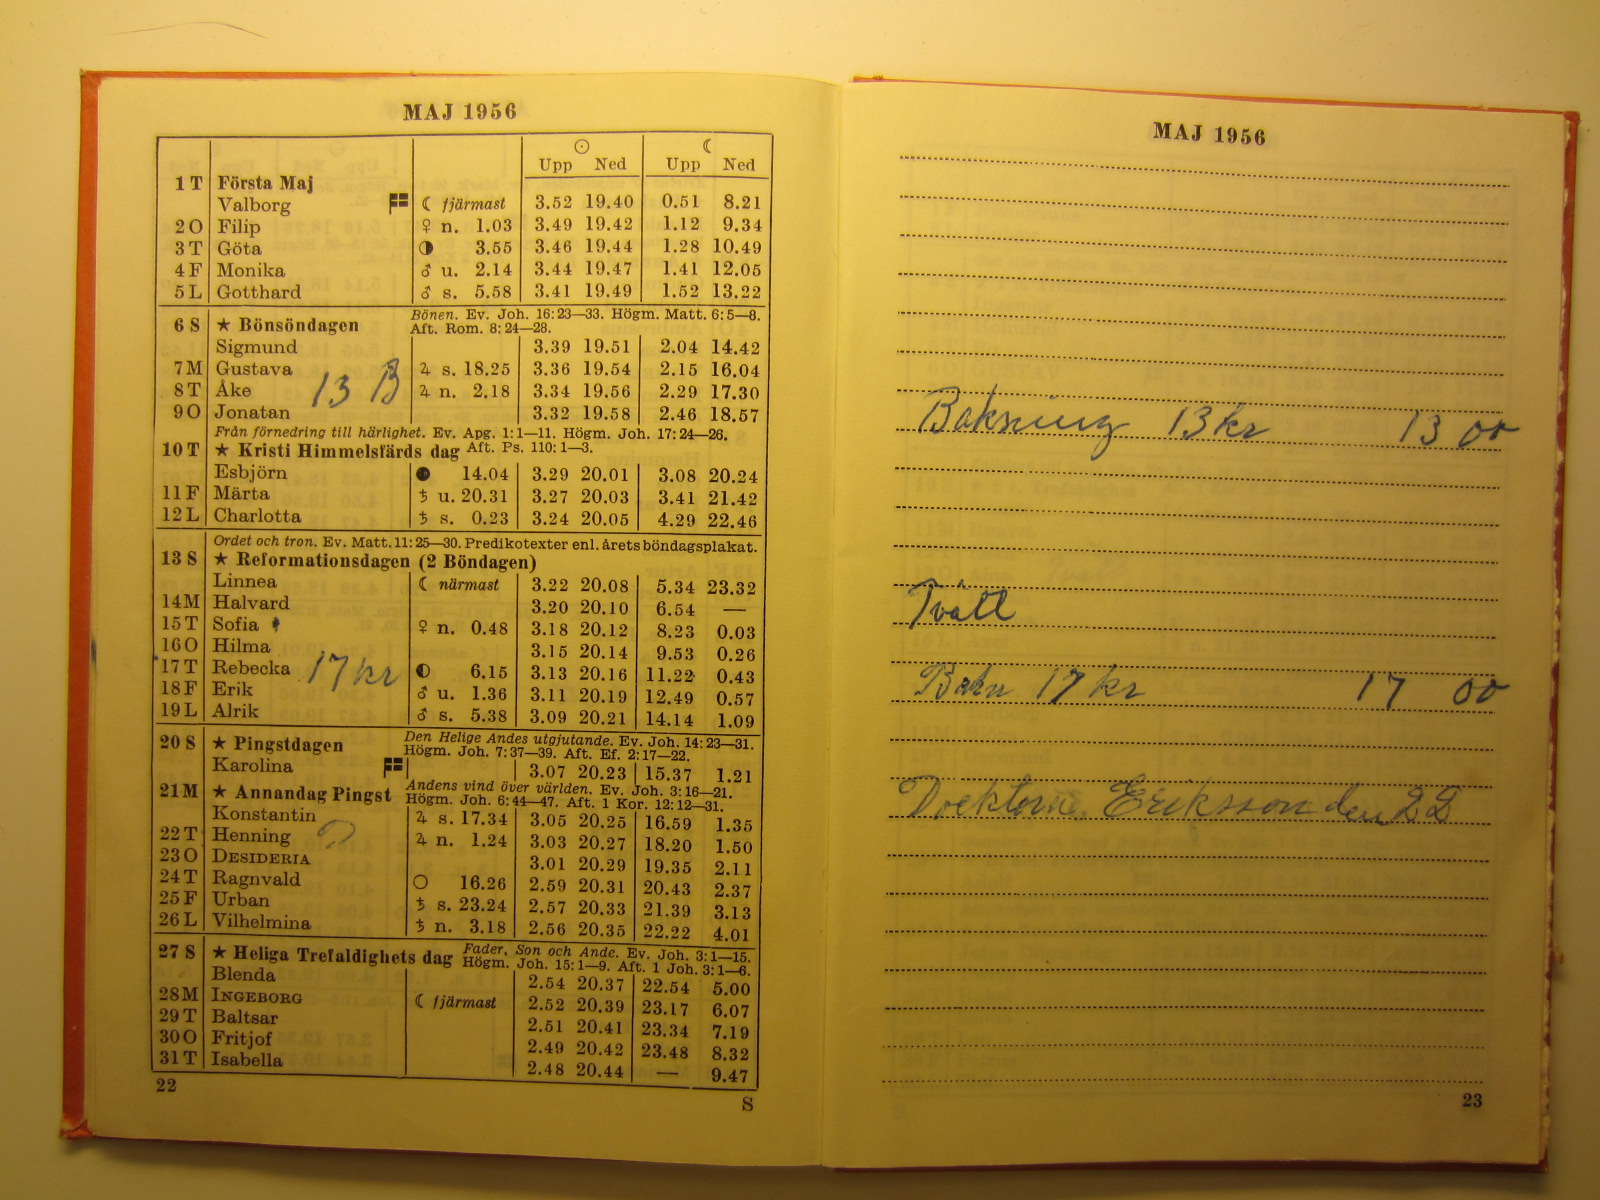 MAJ 1956
☉ ☾
Upp Ned Upp Ned
1 T Första Maj
Valborg ☾ fjärmast 3.52 19.40 0.51 8.21
2 O Filip ♀ n. 1.03 3.49 19.42 1.12 9.34
3 T Göta ◑ 3.55 3.46 19.44 1.28 10.49
4 F Monika ♂ u. 2.14 3.44 19.47 1.41 12.05
5 L Gotthard ♂ s. 5.58 3.41 19.49 1.52 13.22
Bönen. Ev. Joh. 16:23—33. Högm. Matt. 6:5—8.
6 S ★ Bönsöndagen Aft. Rom. 8:24—28.
Sigmund 3.39 19.51 2.04 14.42
7 M Gustava ♃ s. 18.25 3.36 19.54 2.15 16.04
8 T Åke 13 B ♃ n. 2.18 3.34 19.56 2.29 17.30
9 O Jonatan 3.32 19.58 2.46 18.57
Från förnedring till härlighet. Ev. Apg. 1:1—11. Högm. Joh. 17:24—26.
10 T ★ Kristi Himmelsfärds dag Aft. Ps. 110:1—3.
Esbjörn ● 14.04 3.29 20.01 3.08 20.24
11 F Märta ♄ u. 20.31 3.27 20.03 3.41 21.42
12 L Charlotta ♄ s. 0.23 3.24 20.05 4.29 22.46
Ordet och tron. Ev. Matt. 11:25—30. Predikotexter enl. årets böndagsplakat.
13 S ★ Reformationsdagen (2 Böndagen)
Linnea ☾ närmast 3.22 20.08 5.34 23.32
14 M Halvard 3.20 20.10 6.54 —
15 T Sofia ♀ n. 0.48 3.18 20.12 8.23 0.03
16 O Hilma 3.15 20.14 9.53 0.26
17 T Rebecka 17 kr ◐ 6.15 3.13 20.16 11.22 0.43
18 F Erik ♂ u. 1.36 3.11 20.19 12.49 0.57
19 L Alrik ♂ s. 5.38 3.09 20.21 14.14 1.09
Den Helige Andes utgjutande. Ev. Joh. 14:23—31.
20 S ★ Pingstdagen Högm. Joh. 7:37—39. Aft. Ef. 2:17—22.
Karolina 3.07 20.23 15.37 1.21
Andens vind över världen. Ev. Joh. 3:16—21.
21 M ★ Annandag Pingst Högm. Joh. 6:44—47. Aft. 1 Kor. 12:12—31.
Konstantin ♃ s. 17.34 3.05 20.25 16.59 1.35
22 T Henning ♃ n. 1.24 3.03 20.27 18.20 1.50
23 O DESIDERIA 3.01 20.29 19.35 2.11
24 T Ragnvald ○ 16.26 2.59 20.31 20.43 2.37
25 F Urban ♄ s. 23.24 2.57 20.33 21.39 3.13
26 L Vilhelmina ♄ n. 3.18 2.56 20.35 22.22 4.01
Fader, Son och Ande. Ev. Joh. 3:1—15.
27 S ★ Heliga Trefaldighets dag Högm. Joh. 15:1—9. Aft. 1 Joh. 3:1—6.
Blenda 2.54 20.37 22.54 5.00
28 M INGEBORG ☾ fjärmast 2.52 20.39 23.17 6.07
29 T Baltsar 2.51 20.41 23.34 7.19
30 O Fritjof 2.49 20.42 23.48 8.32
31 T Isabella 2.48 20.44 — 9.47
22
S
MAJ 1956
Bakning 13 kr 13 00
Tvätt
17 kr 17 00
Docktorn Eriksson den 22
23